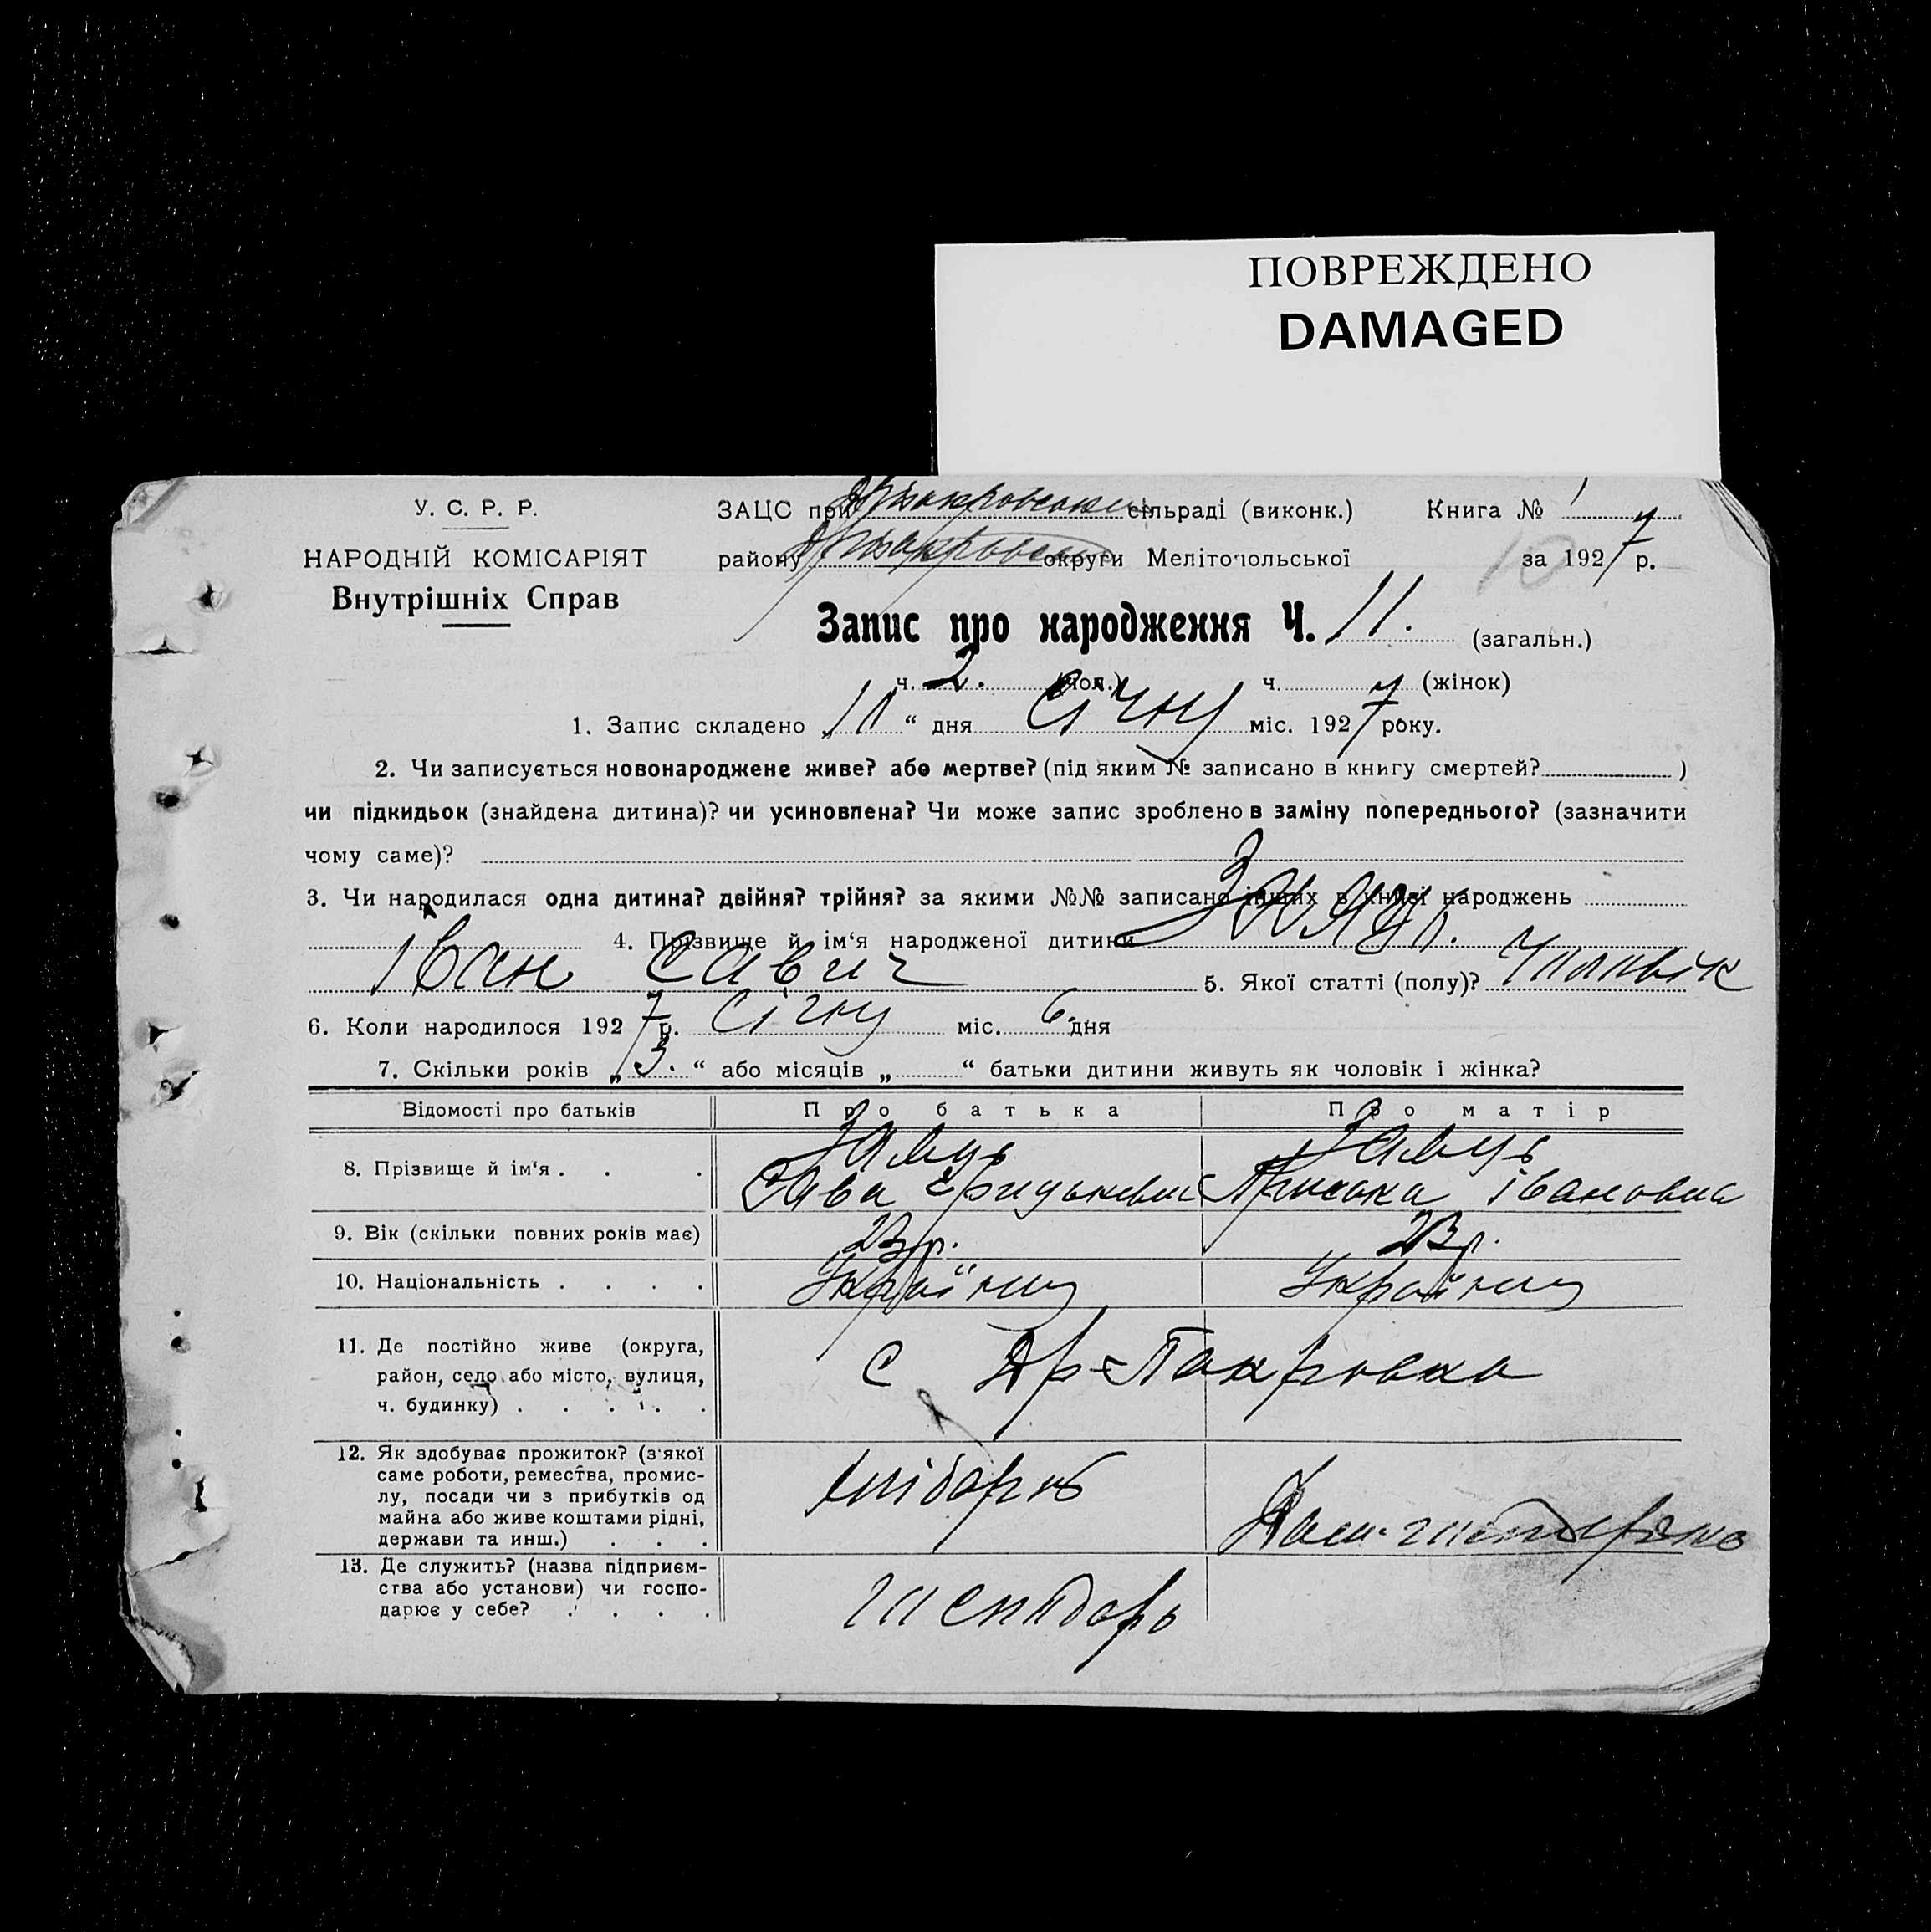 ПОВРЕЖДЕНО
DAMAGED
У. С. Р. Р.
НАРОДНІЙ КОМІСАРІЯТ
Внутрішніх Справ
ЗАЦС при сільраді (виконк.) Книга № 1
району округи Мелітопольської за 1927 р.
10
Запис про народження Ч. 11. (загальн.)
ч. 2. (чол.) ч. (жінок)
1. Запис складено „11“ дня Січня міс. 1927 року.
2. Чи записується новонароджене живе? або мертве? (під яким № записано в книгу смертей? )
чи підкидьок (знайдена дитина)? чи усиновлена? Чи може запис зроблено в заміну попереднього? (зазначити
чому саме)?
3. Чи народилася одна дитина? двійня? трійня? за якими №№ записано інших в книзі народжень
4. Прізвище й ім‘я народженої дитини
Іван Савич 5. Якої статті (полу)? Чоловік
6. Коли народилося 1927 р. Січня міс. 6 дня
7. Скільки років „3.“ або місяців „ “ батьки дитини живуть як чоловік і жінка?
Відомості про батьків Про батька Про матір
8. Прізвище й ім‘я . . . Заяць Заяць
Сава Грицькович Івановна
9. Вік (скільки повних років має) 23 р. 23 р.
10. Національність . . . .
11. Де постійно живе (округа,
район, село або місто, вулиця,
ч. будинку) . . . . .
с Др-Покровка
12. Як здобуває прожиток? (з'якої
саме роботи, ремества, промис-
лу, посади чи з прибутків од
майна або живе коштами рідні,
держави та инш.) . . .
хлібороб
13. Де служить? (назва підприєм-
ства або установи) чи госпо-
дарює у себе? . . . .